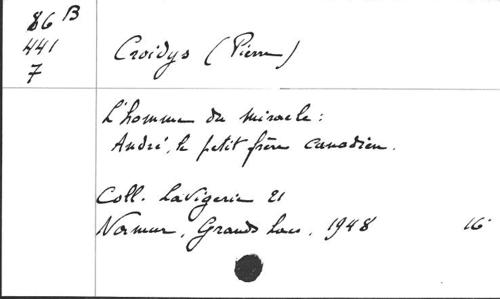 86 B
441
7
Croidys (Pierre)
L'homme du miracle :
André, le petit frère canadien.
Coll. Lavigerie 21
Namur, Grands Lacs, 1948 16°